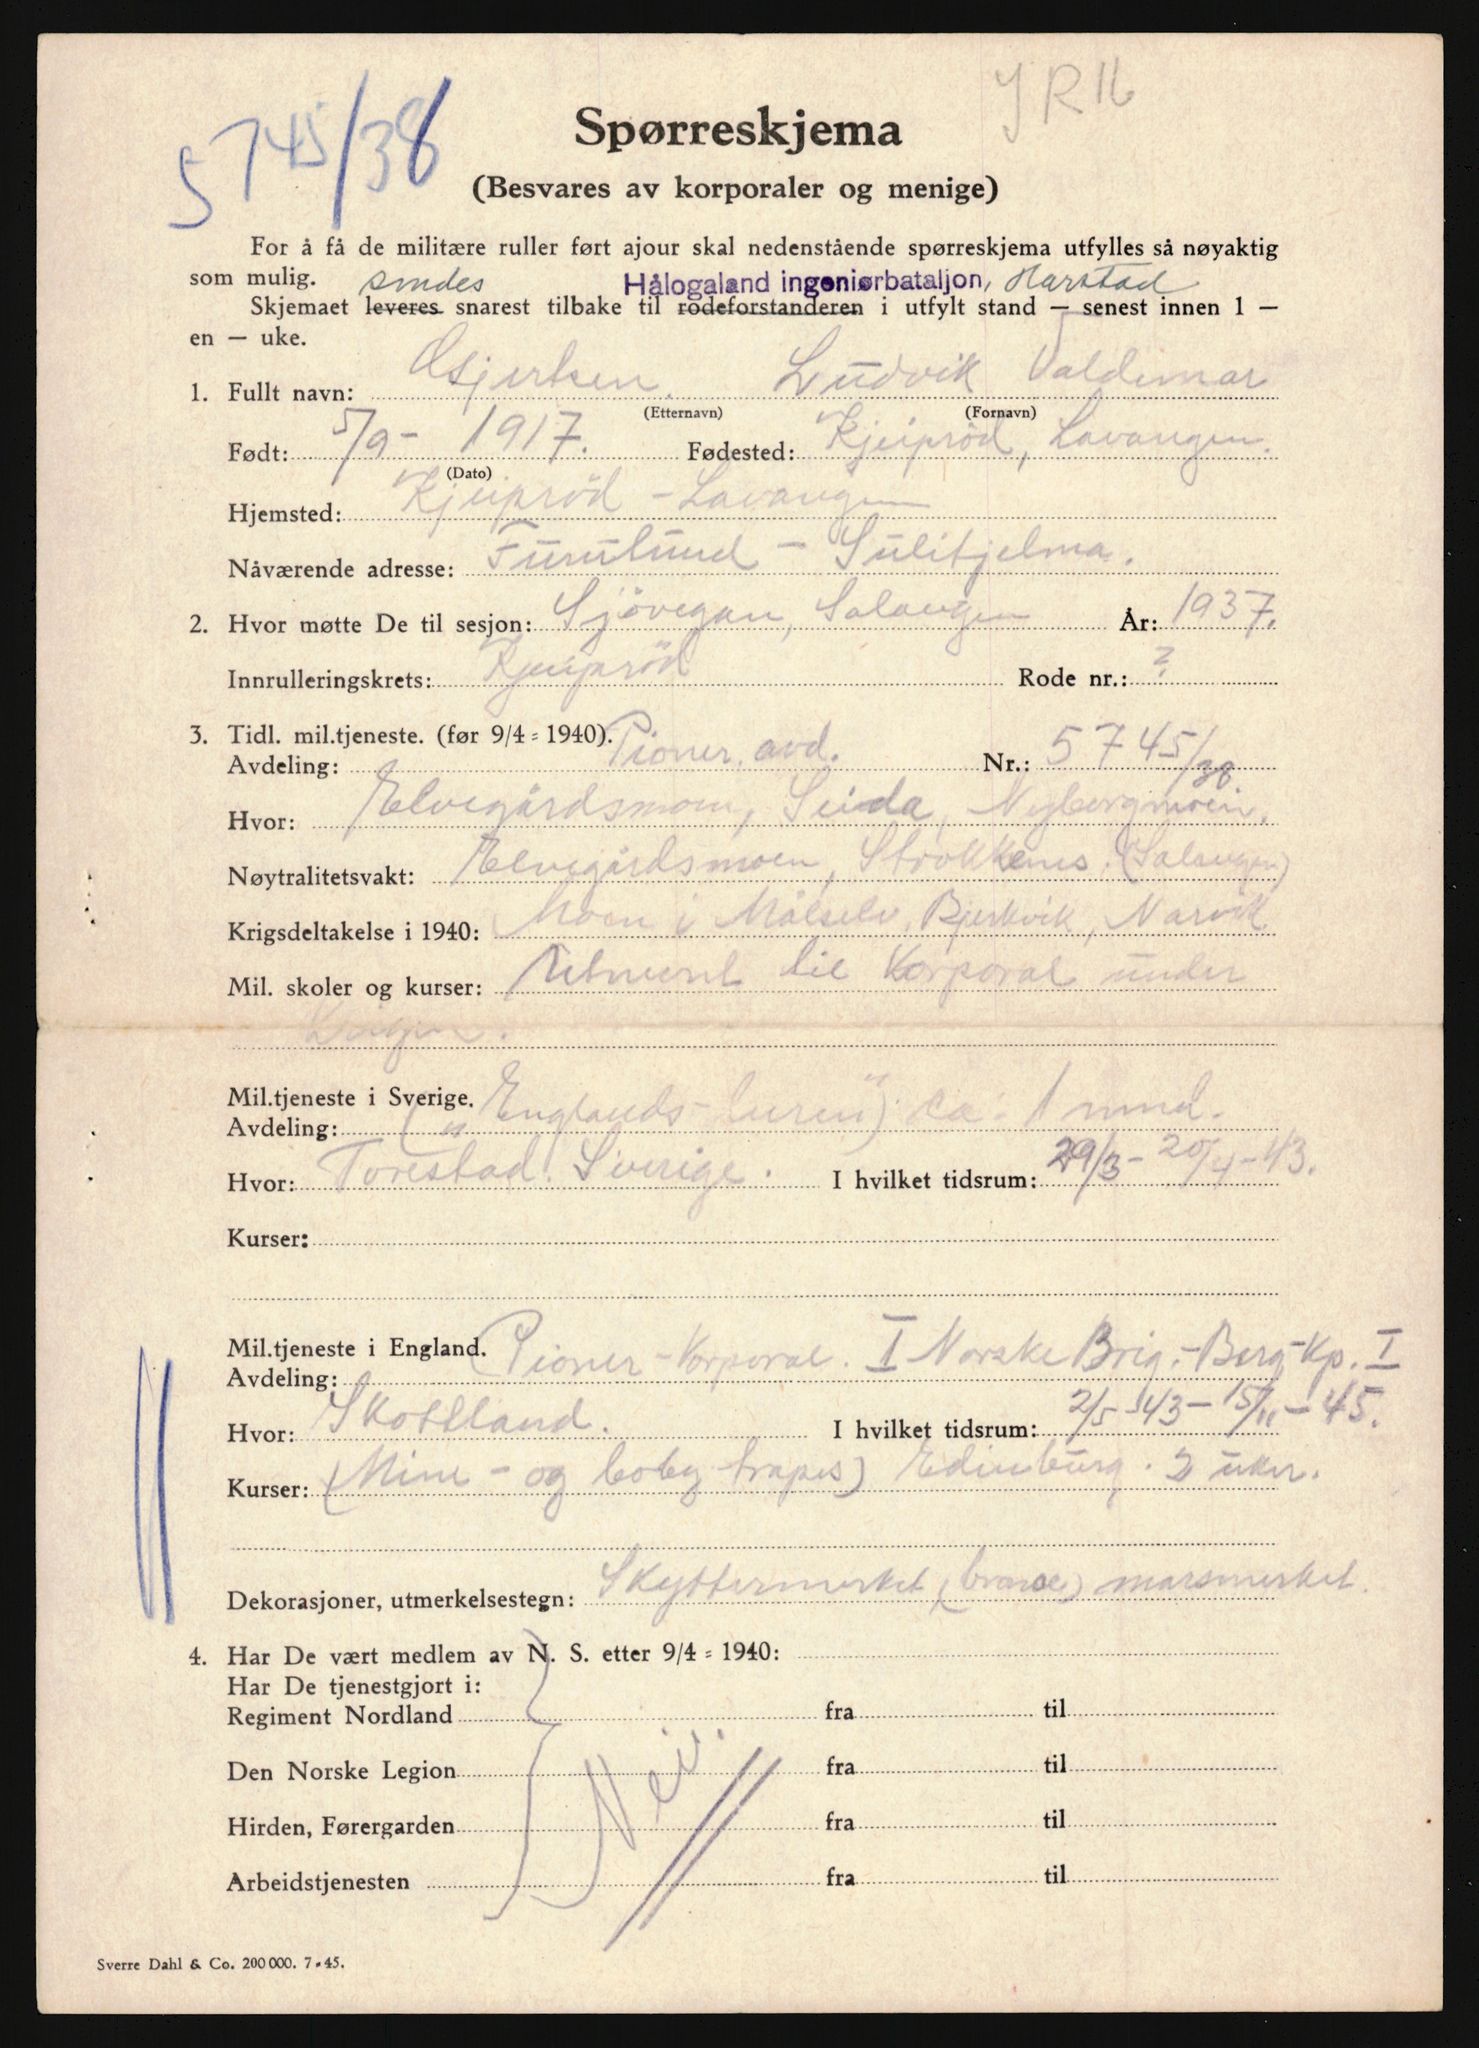 5745/38
IR 16
Spørreskjema
(Besvares av korporaler og menige)
For å få de militære ruller ført ajour skal nedenstående spørreskjema utfylles så nøyaktig
som mulig. sendes Hålogaland ingeniørbataljon, Harstad
Skjemaet leveres snarest tilbake til rodeforstanderen i utfylt stand — senest innen 1 —
en — uke.
1. Fullt navn: Ludvik Valdemar
(Etternavn) (Fornavn)
Født: 5/9 - 1917. Fødested: Kjeiprød, Lavangen.
(Dato)
Hjemsted: Kjeiprød - Lavangen
Nåværende adresse: Furulund - Sulitjelma.
2. Hvor møtte De til sesjon: Sjövegan, Salangen År: 1937.
Innrulleringskrets: Kjeipröd Rode nr.: ?
3. Tidl. mil.tjeneste. (før 9/4 = 1940).
Avdeling: Pioner avd. Nr.: 5745/38
Hvor: Elvegårdsmoen, Seida, Nybergmoen,
Nøytralitetsvakt: Elvegårdsmoen, Strokkenes (Salangen)
Krigsdeltakelse i 1940: Moen i Målselv, Bjerkvik, Narvik
Mil. skoler og kurser: Utnevnt til Korporal under
Krigen.
Mil.tjeneste i Sverige.
Avdeling: ("Englands-turen") ca. 1 mnd.
Hvor: Torestad. Sverige. I hvilket tidsrum: 29/3 - 20/4 - 43.
Kurser:
Mil.tjeneste i England.
Avdeling: Pioner-Korporal. I Norske Brig. - Berg-Kp. I
Hvor: Skottland. I hvilket tidsrum: 2/5 - 43 - 15/11 - 45.
Kurser: (Mine- og boby-trapes) Edinburg. 2 uker.
Dekorasjoner, utmerkelsestegn: Skyttermerket, (bronse) marsmerket.
4. Har De vært medlem av N. S. etter 9/4 = 1940:
Har De tjenestgjort i:
Regiment Nordland fra til
Den Norske Legion fra til
Nei.
Hirden, Førergarden fra til
Arbeidstjenesten fra til
Sverre Dahl & Co. 200 000. 7 - 45.